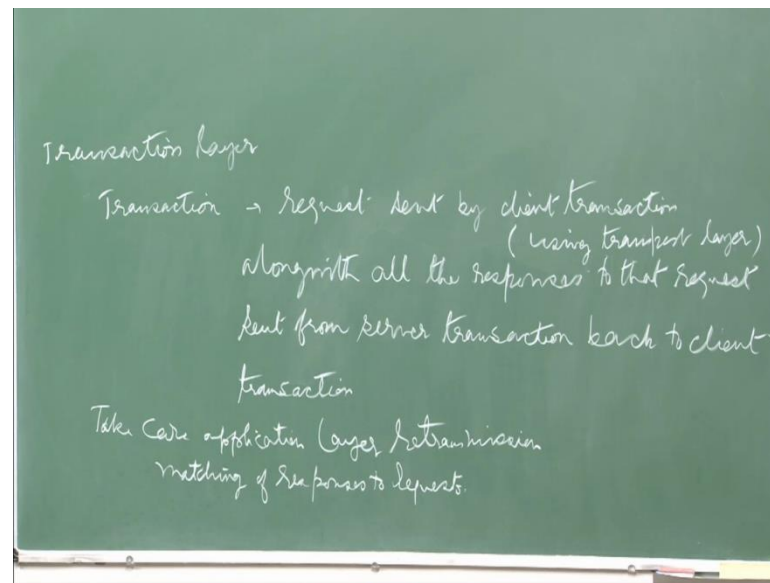 Transaction layer
Transaction → request sent by client transaction
(using transport layer)
alongwith all the responses to that request
sent from server transaction back to client
transaction
Take care application layer retransmission
matching of responses to requests.